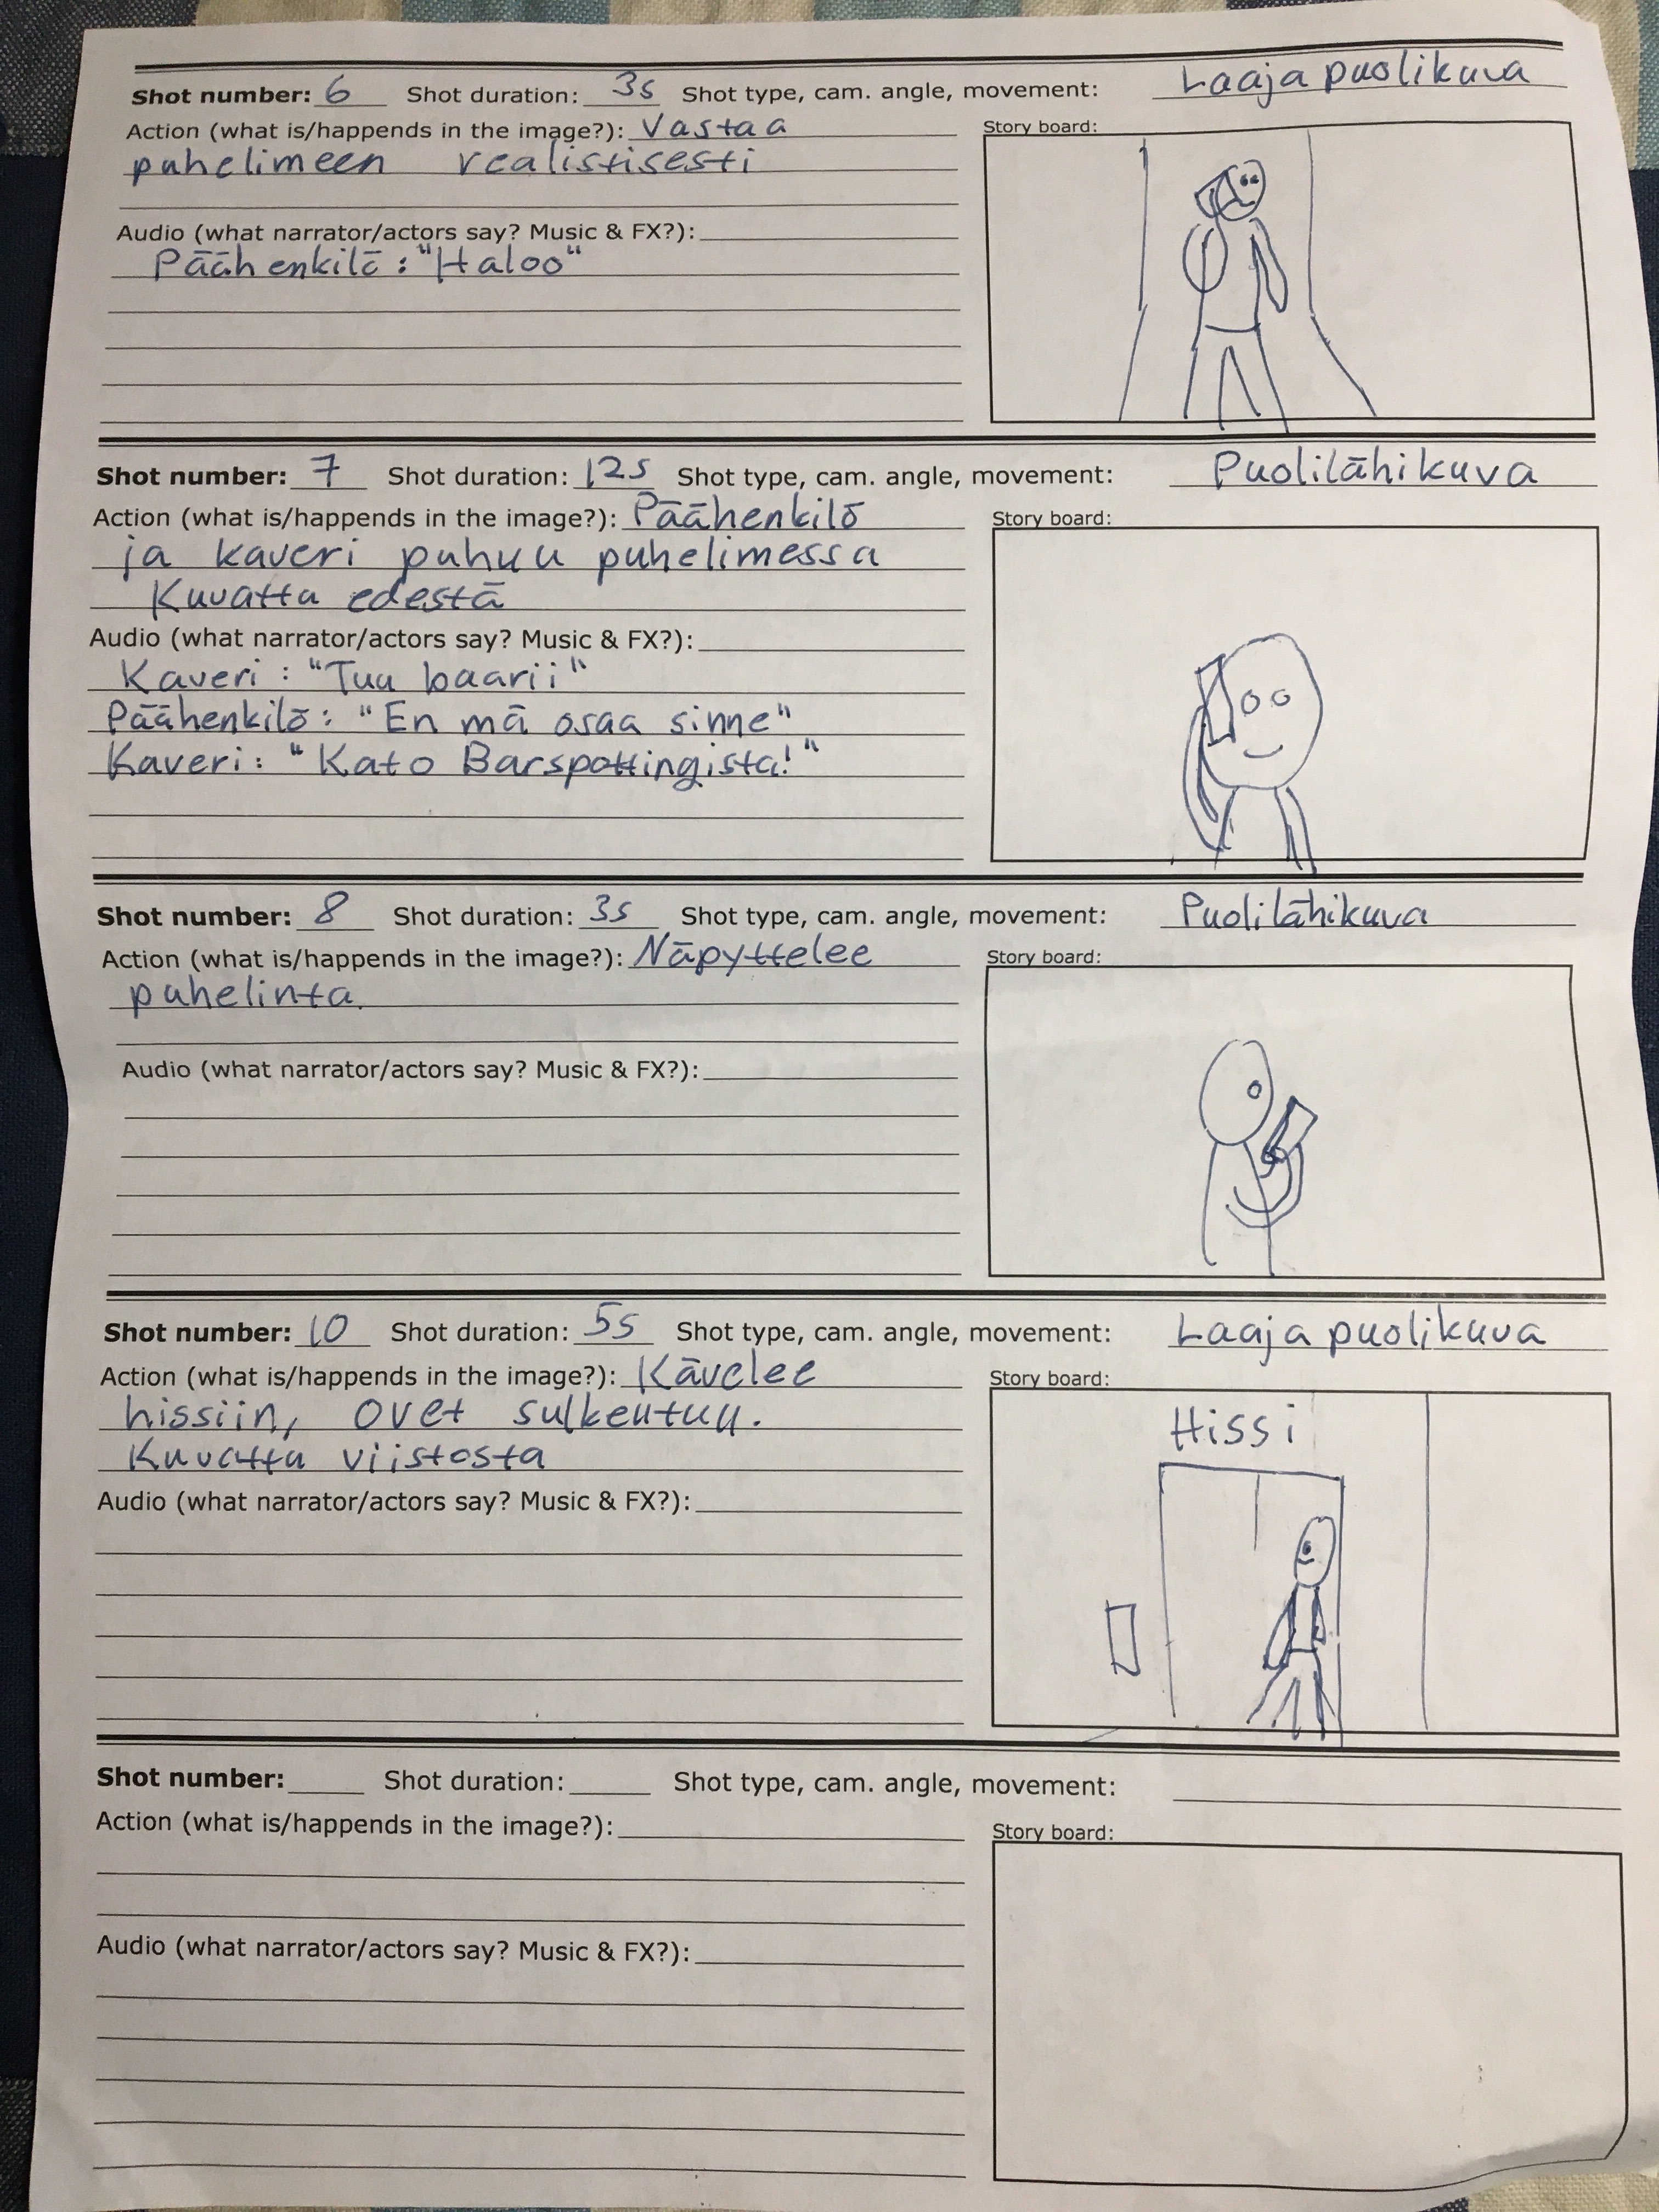 Shot number: 6 Shot duration: 3s Shot type, cam. angle, movement: Laaja puolikuva
Action (what is/happends in the image?): Vastaa
puhelimeen realistisesti
Story board:
Audio (what narrator/actors say? Music & FX?):
Päähenkilö: "Haloo"
Shot number: 7 Shot duration: 12s Shot type, cam. angle, movement: Puolilähikuva
Action (what is/happends in the image?): Päähenkilö
ja kaveri puhuu puhelimessa
Kuvatta edestä
Story board:
Audio (what narrator/actors say? Music & FX?):
Kaveri: "Tuu baarii"
Päähenkilö: "En mä osaa sinne"
Kaveri: "Kato Barspottingista!"
Shot number: 8 Shot duration: 3s Shot type, cam. angle, movement: Puolilähikuva
Action (what is/happends in the image?): Näpyttelee
puhelinta.
Story board:
Audio (what narrator/actors say? Music & FX?):
Shot number: 10 Shot duration: 5s Shot type, cam. angle, movement: Laaja puolikuva
Action (what is/happends in the image?): Kävelee
hissiin, ovet sulkeutuu.
Kuvatta viistosta
Story board:
Hissi
Audio (what narrator/actors say? Music & FX?):
Shot number: Shot duration: Shot type, cam. angle, movement:
Action (what is/happends in the image?):
Story board:
Audio (what narrator/actors say? Music & FX?):